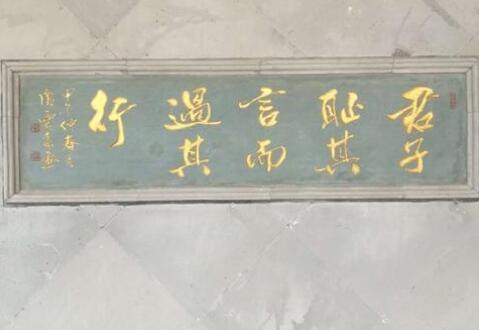 君子
耻其
言而
過其
行